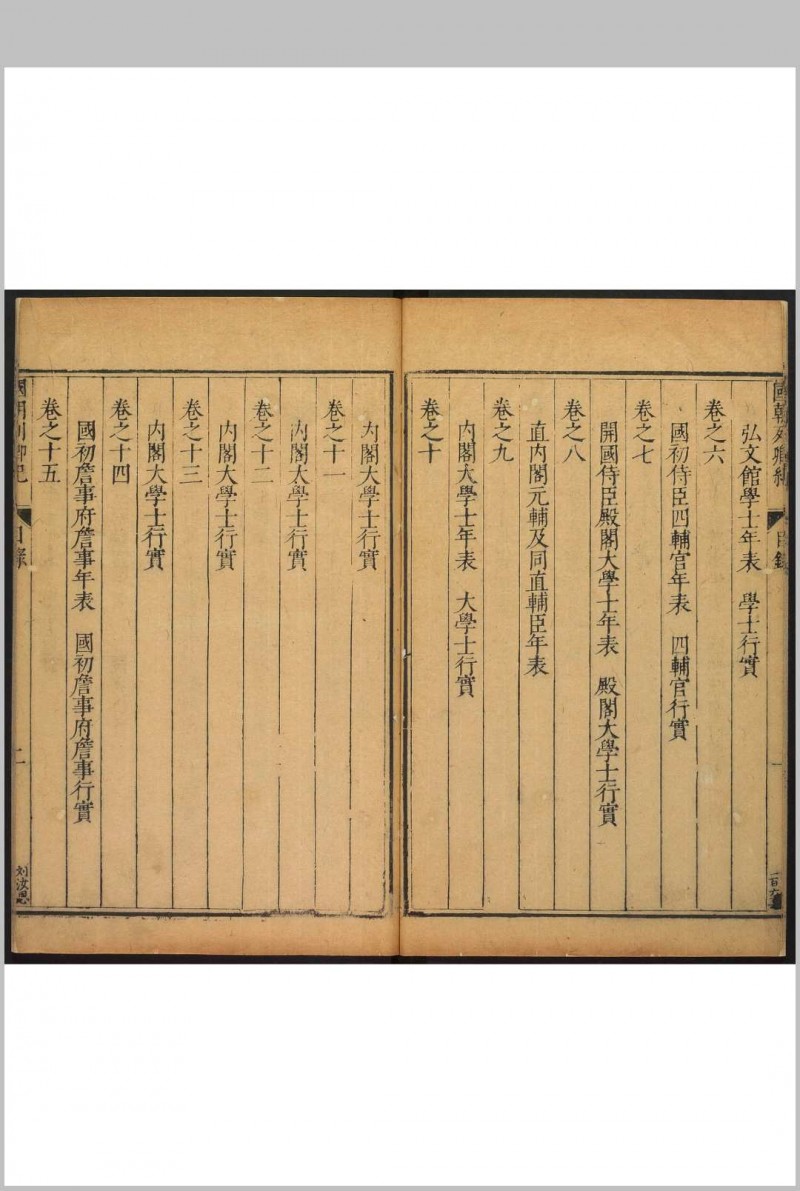 國朝列卿紀
目錄
一
弘文館學士年表　學士行實
卷之六
國初侍臣四輔官年表　四輔官行實
卷之七
開國侍臣殿閣大學士年表　殿閣大學士行實
卷之八
直內閣元輔及同直輔臣年表
卷之九
內閣大學士年表　大學士行實
卷之十
內閣大學士行實
卷之十一
內閣大學士行實
卷之十二
內閣大學士行實
卷之十三
內閣大學士行實
卷之十四
國初詹事府詹事年表　國初詹事府詹事行實
卷之十五
國朝列卿紀
目錄
二
刘汝恩